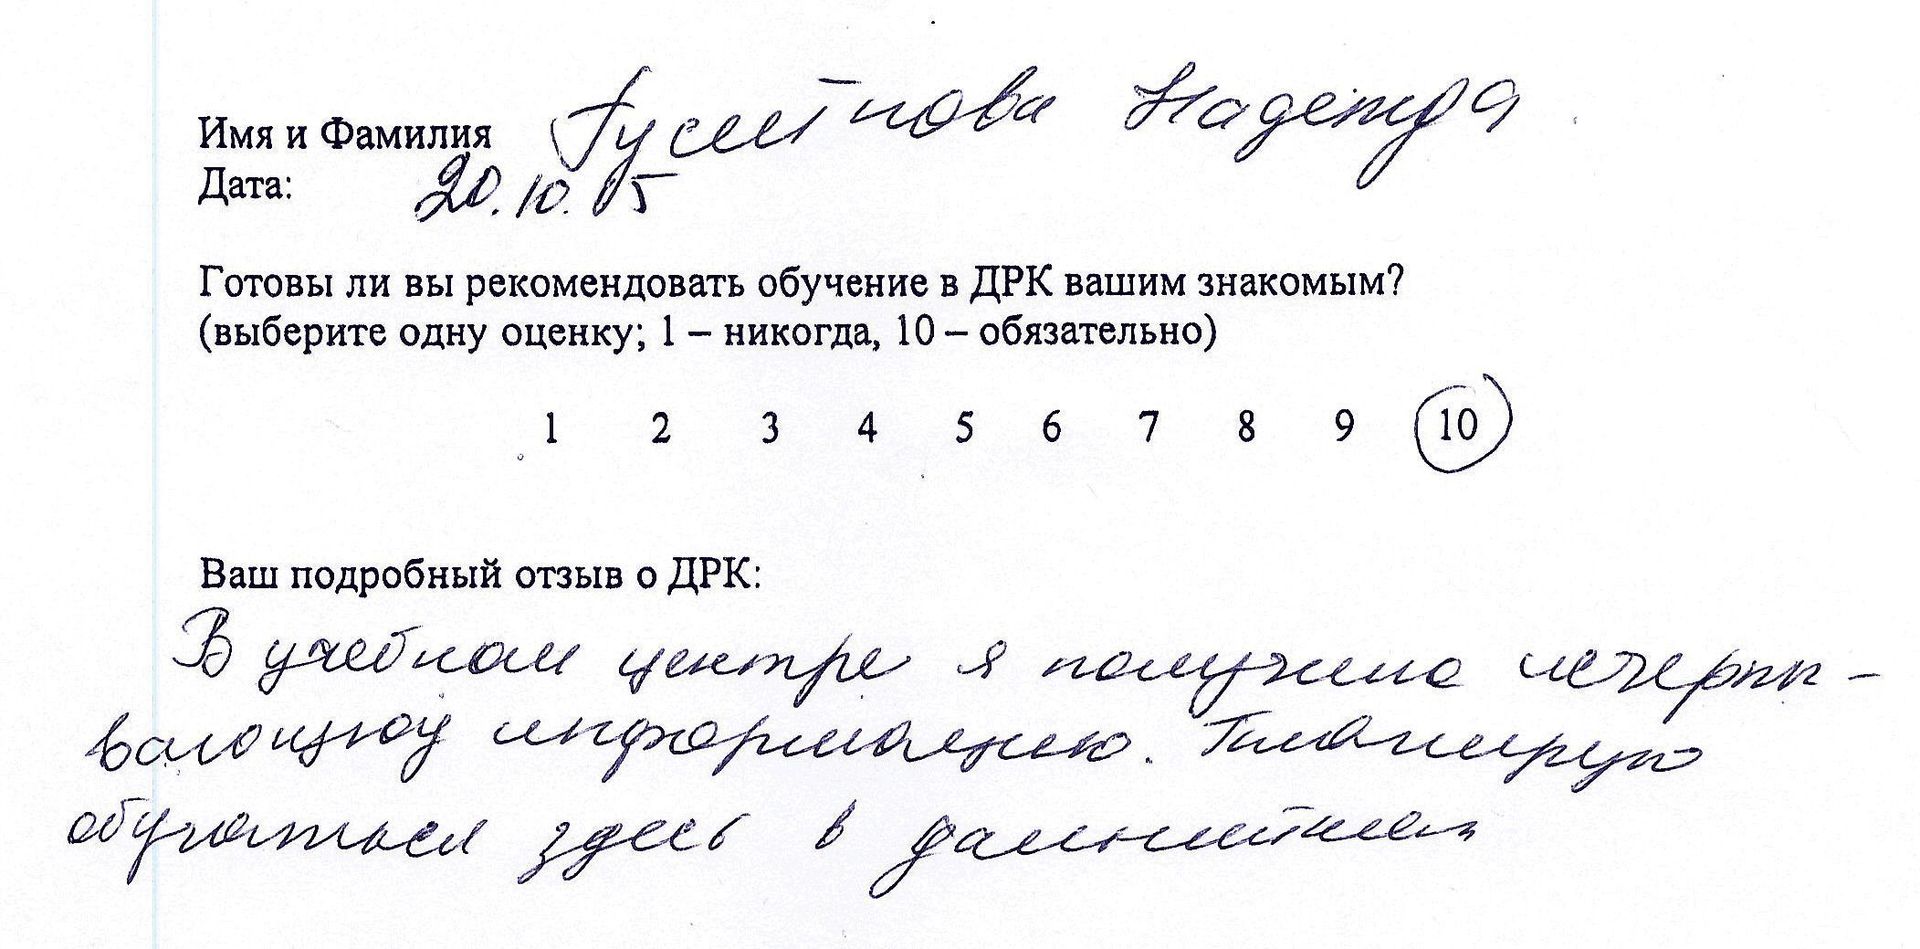 Имя и Фамилия Гусейнова Надежда
Дата: 20.10.15
Готовы ли вы рекомендовать обучение в ДРК вашим знакомым?
(выберите одну оценку; 1 – никогда, 10 – обязательно)
1 2 3 4 5 6 7 8 9 10
Ваш подробный отзыв о ДРК:
В учебном центре я получила исчерпы-
вающую информацию. Планирую
обучаться здесь в дальнейшем